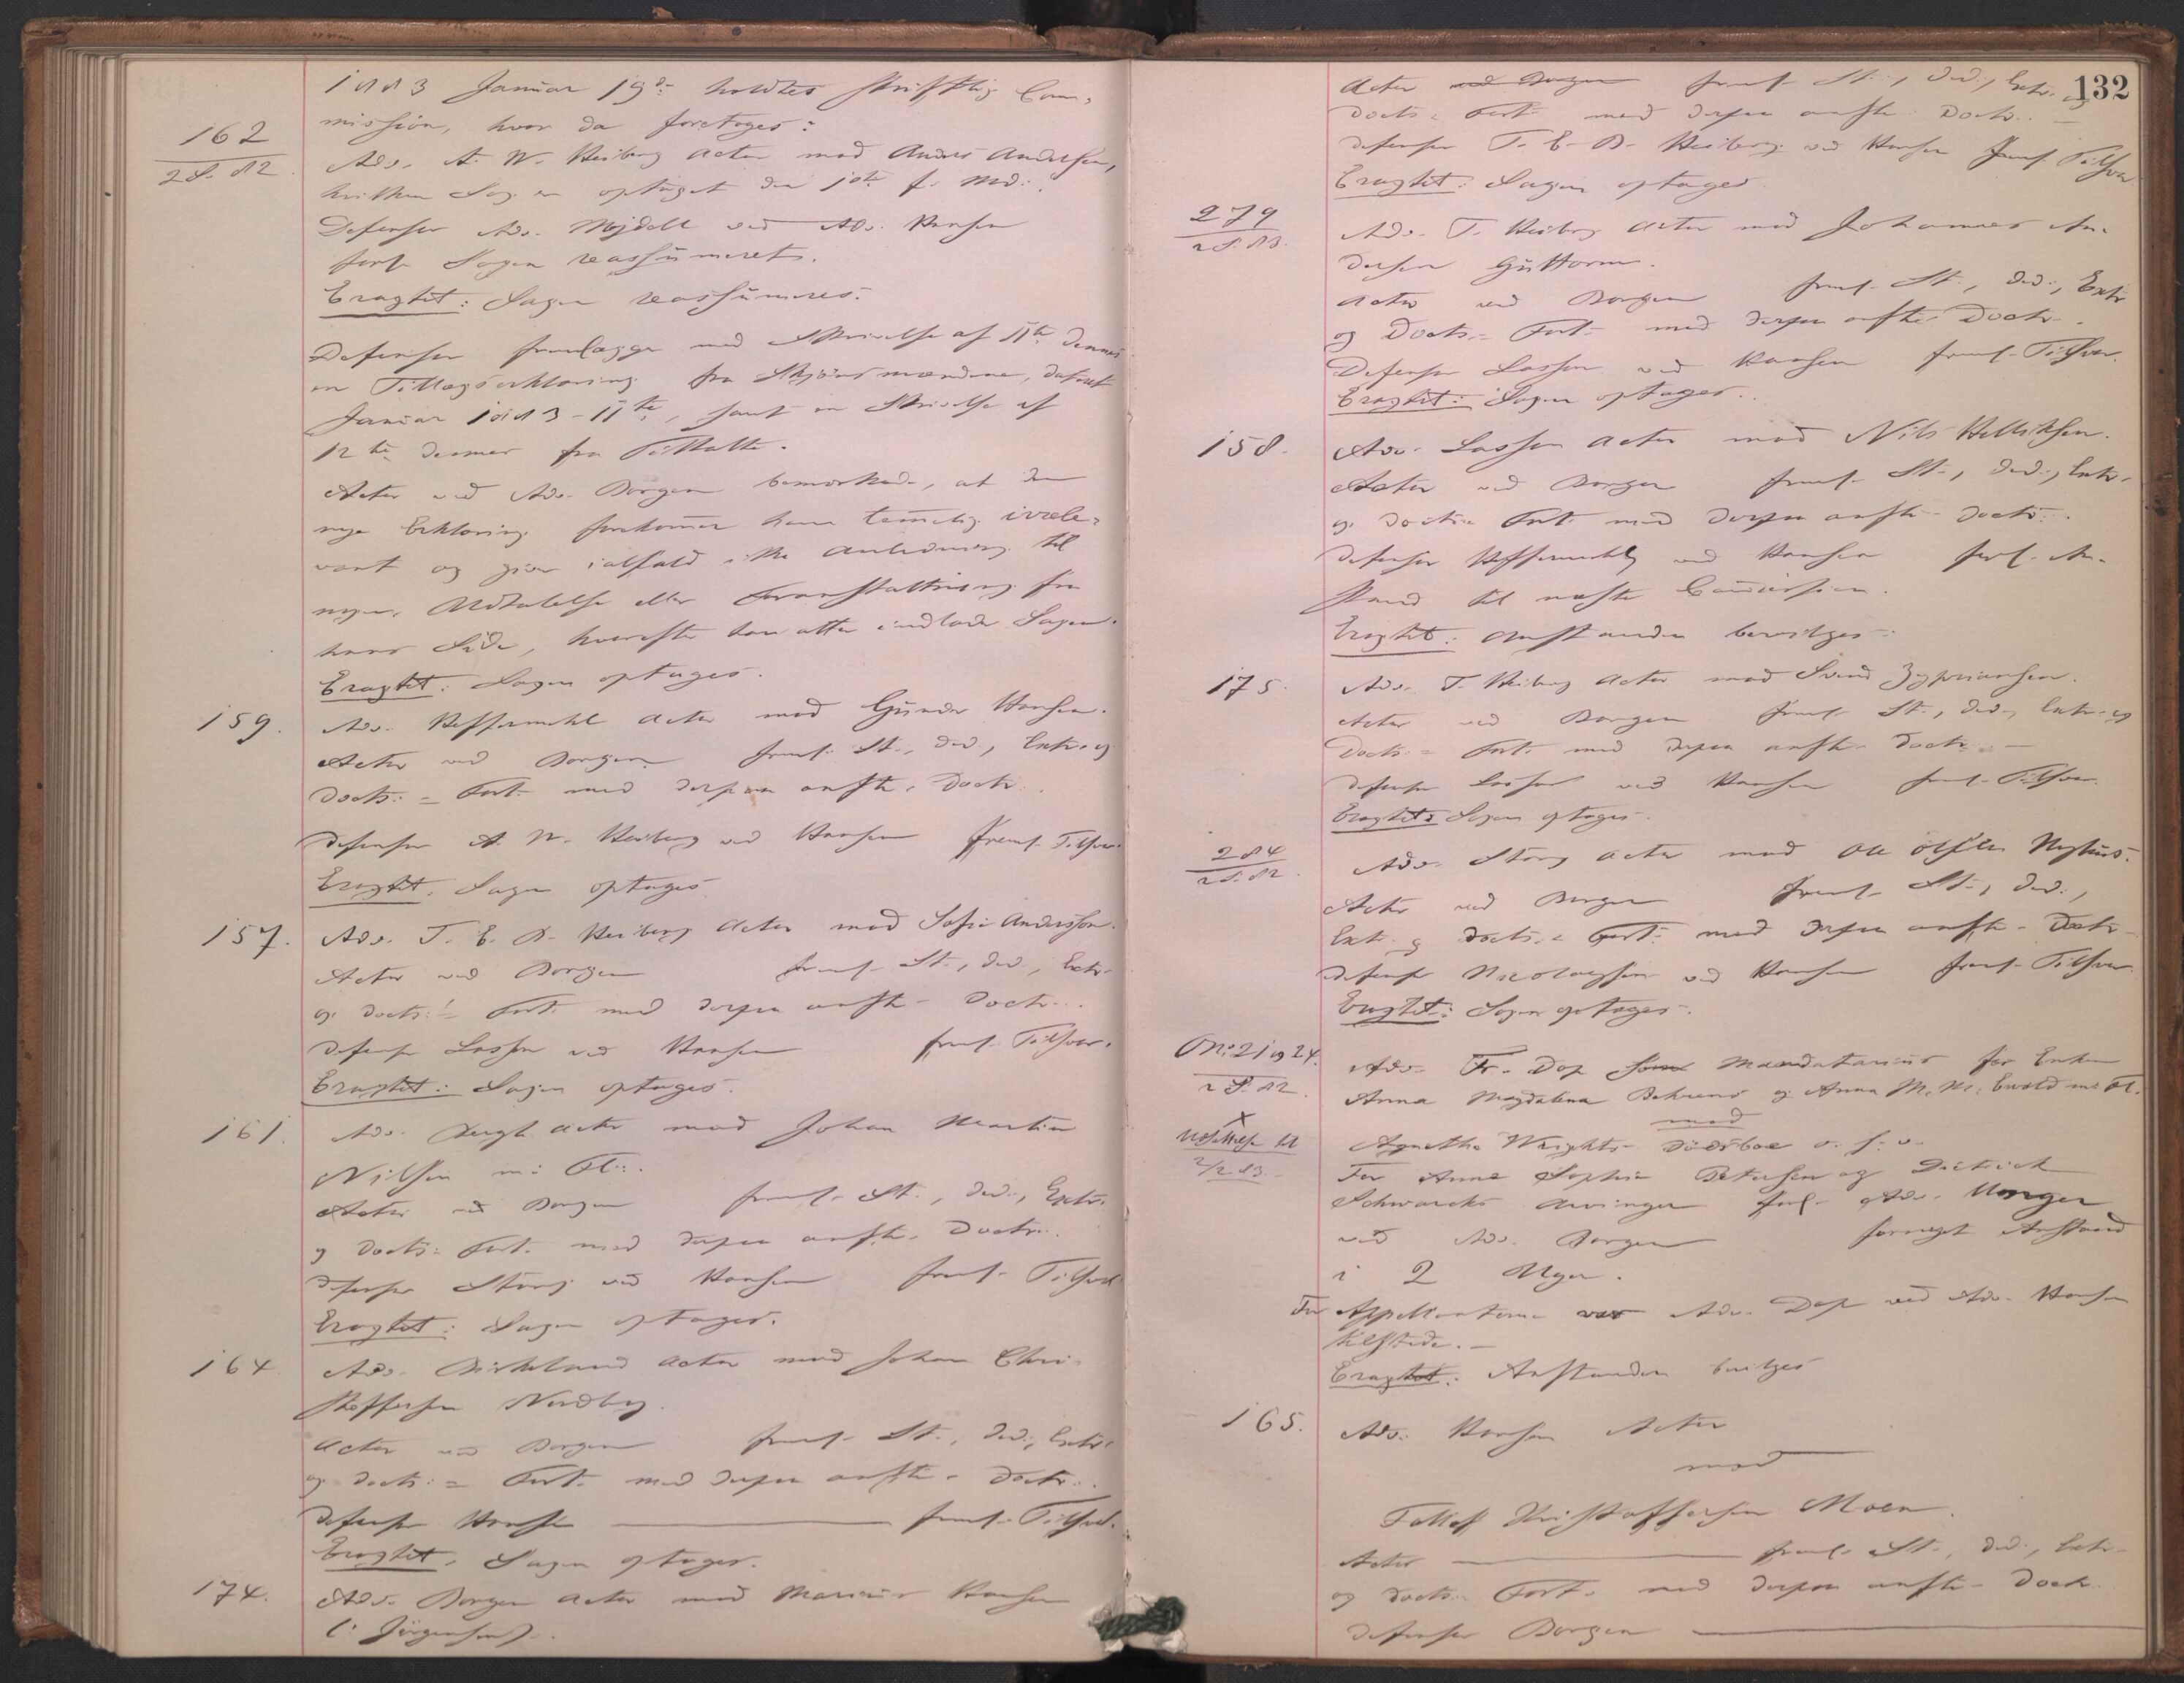 1883 Januar 19de holdtes skriftlig Com-
mission, hvor da foretoges:
162
2 S. 82.
Adv. A. W. Heiberg Actor mod Anders Andersen,
hvilken Sag er optaget den 10te f. Md.
Defensor Adv. Mejdell ved Adv. Hansen
forl. Sagen reassumeret.
Eragtet: Sagen reassumeres.
Defensor fremlægger med Skrivelse af 11te dennes
en Tillægserklæring fra Skjönsmændene, dateret
Januar 1883 - 11te, samt en Skrivelse af
12te dennes fra Tiltalte.
Actor ved Adv. Borgen bemærkede, at den
nye Erklæring forekommer ham temmelig irrele-
vant og giver ialfald ikke Anledning til
nogen Udtalelse eller Foranstaltning fra
hans Side, hvorefter han atter indlader Sagen.
Eragtet: Sagen optages.
159.
Adv. Heffermehl Actor mod Gunder Hansen.
Actor ved Borgen freml. St., Ded., Extr. og
Doctr. = Fort. med derpaa anfte. Doctr.
Defensor A. W. Heiberg ved Hansen freml. Tilsvar.
Eragtet. Sagen optages
157.
Adv. T. E. B. Heiberg Actor mod Sofie Andersson.
Actor ved Borgen freml. St., Ded., Extr.
og Doctr. = Fort. med derpaa anfte. Doctr.
Defensor Lasson ved Hansen freml. Tilsvar.
Eragtet: Sagen optages.
161.
Adv. Bergh Actor mod Johan Martin
Nilsen m. Fl.
Actor ved Borgen freml. St., Ded., Extr.
og Doctr. = Fort. med derpaa anfte. Doctr.
Defensor Stang ved Hansen freml. Tilsvar
Eragtet: Sagen optages.
164.
Adv. Birkeland Actor mod Johan Chri-
stoffersen Nordby.
Actor ved Borgen freml. St., Ded., Extr.
og Doctr. = Fort. med derpaa anfte. Doctr.
Defensor Hansen freml. Tilsvar.
Eragtet. Sagen optages.
174.
Adv. Borgen Actor mod Marius Hansen
(: Jörgensen).
132
Actor ved Borgen freml. St., Ded., Extr. og
Doctr. = Fort. med derpaa anfte. Doctr.
Defensor T. E. B. Heiberg ved Hansen freml. Tilsvar
Eragtet: Sagen optages
279
2 S. 83.
Adv. T. Heiberg Actor mod Johannes An-
dersen Guttorm.
Actor ved Borgen freml. St., Ded., Extr
og Doctr. = Fort. med derpaa anfte. Doctr.
Defensor Lasson ved Hansen freml. Tilsvar.
Eragtet: Sagen optages.
158.
Adv. Lasson Actor mod Nils Helliksen.
Actor ved Borgen freml. St., Ded., Extr.
og Doctr. = Fort. med derpaa anfte. Doctr.
Defensor Heffermehl ved Hansen forl. An-
stand til næste Commission.
Eragtet: Anstanden bevilges.
175.
Adv. T. Heiberg Actor mod Svend Zypriansen.
Actor ved Borgen freml. St., Ded., Extr. og
Doctr. = Fort. med derpaa anfte. Doctr.
Defensor Lasson ved Hansen freml. Tilsvar.
Eragtet: Sagen optages.
284
2 S. 82.
Adv. Stang Actor mod Ole Olsen Nyhus.
Actor ved Borgen freml. St., Ded.,
Extr. og Doctr. = Fort. med derpaa anfte. Doctr.
Defensor Nicolaysen ved Hansen freml. Tilsvar
Eragtet: Sagen optages.
No. 21 og 24.
2 S. 82.
x
Udsættelse til
2/2 83.
Adv. Fr. Dop som Mandatarius for Enken
Anna Magdalena Behrens og Anna M. M. Ewold m. Fl.
mod
Agnetha Wrights Dödsboe o. s. v.
For Anne Sophie Petersen og Dietrick
Schwarcks Arvinger forl. Adv. Unger
ved Adv. Borgen fornyet Anstand
i 2 Uger.
For Appellanterne var Adv. Dop ved Adv. Hansen
tilstede.
Eragtet: Anstanden bevilges
165.
Adv. Hansen Actor
mod
Tollef Kristoffersen Moen.
Actor freml. St., Ded., Extr.
og Doctr. Fort. med derpaa anfte. Doctr.
Defensor Borgen